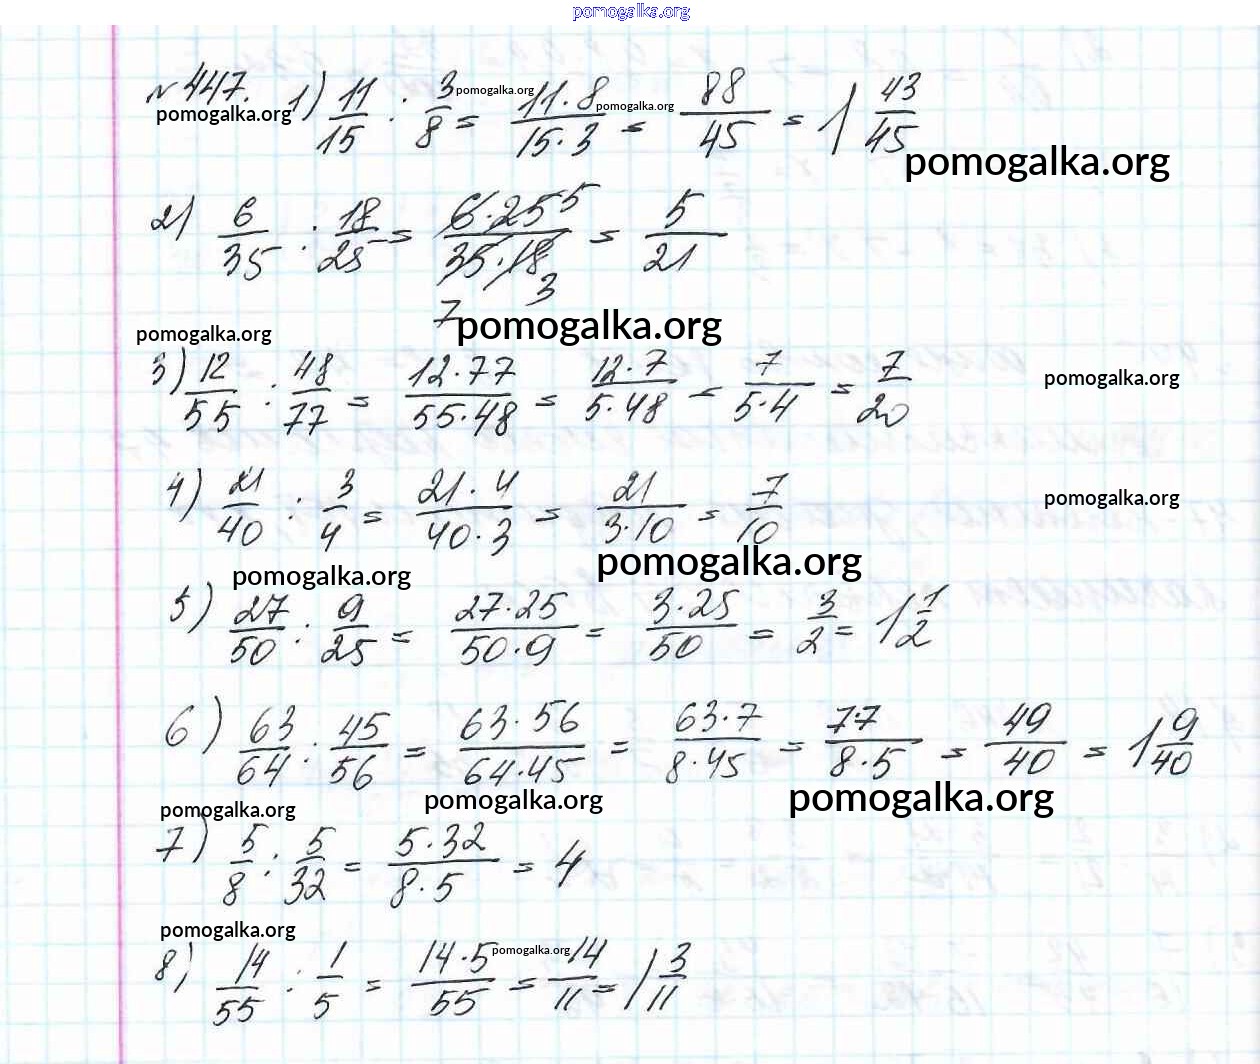 pomogalka.org
№447. 1) 11/15 : 3/8 = 11·8/15·3 = 88/45 = 1 43/45
pomogalka.org pomogalka.org pomogalka.org
pomogalka.org
2) 6/35 : 18/25 = 6·25 5/35·18 = 5/21
7 3
pomogalka.org
pomogalka.org
3) 12/55 : 48/77 = 12·77/55·48 = 12·7/5·48 = 7/5·4 = 7/20
pomogalka.org
4) 21/40 : 3/4 = 21·4/40·3 = 21/3·10 = 7/10
pomogalka.org
pomogalka.org pomogalka.org
5) 27/50 : 9/25 = 27·25/50·9 = 3·25/50 = 3/2 = 1 1/2
6) 63/64 : 45/56 = 63·56/64·45 = 63·7/8·45 = 7·7/8·5 = 49/40 = 1 9/40
pomogalka.org pomogalka.org pomogalka.org
7) 5/8 : 5/32 = 5·32/8·5 = 4
pomogalka.org
8) 14/55 : 1/5 = 14·5/55 = 14/11 = 1 3/11
pomogalka.org